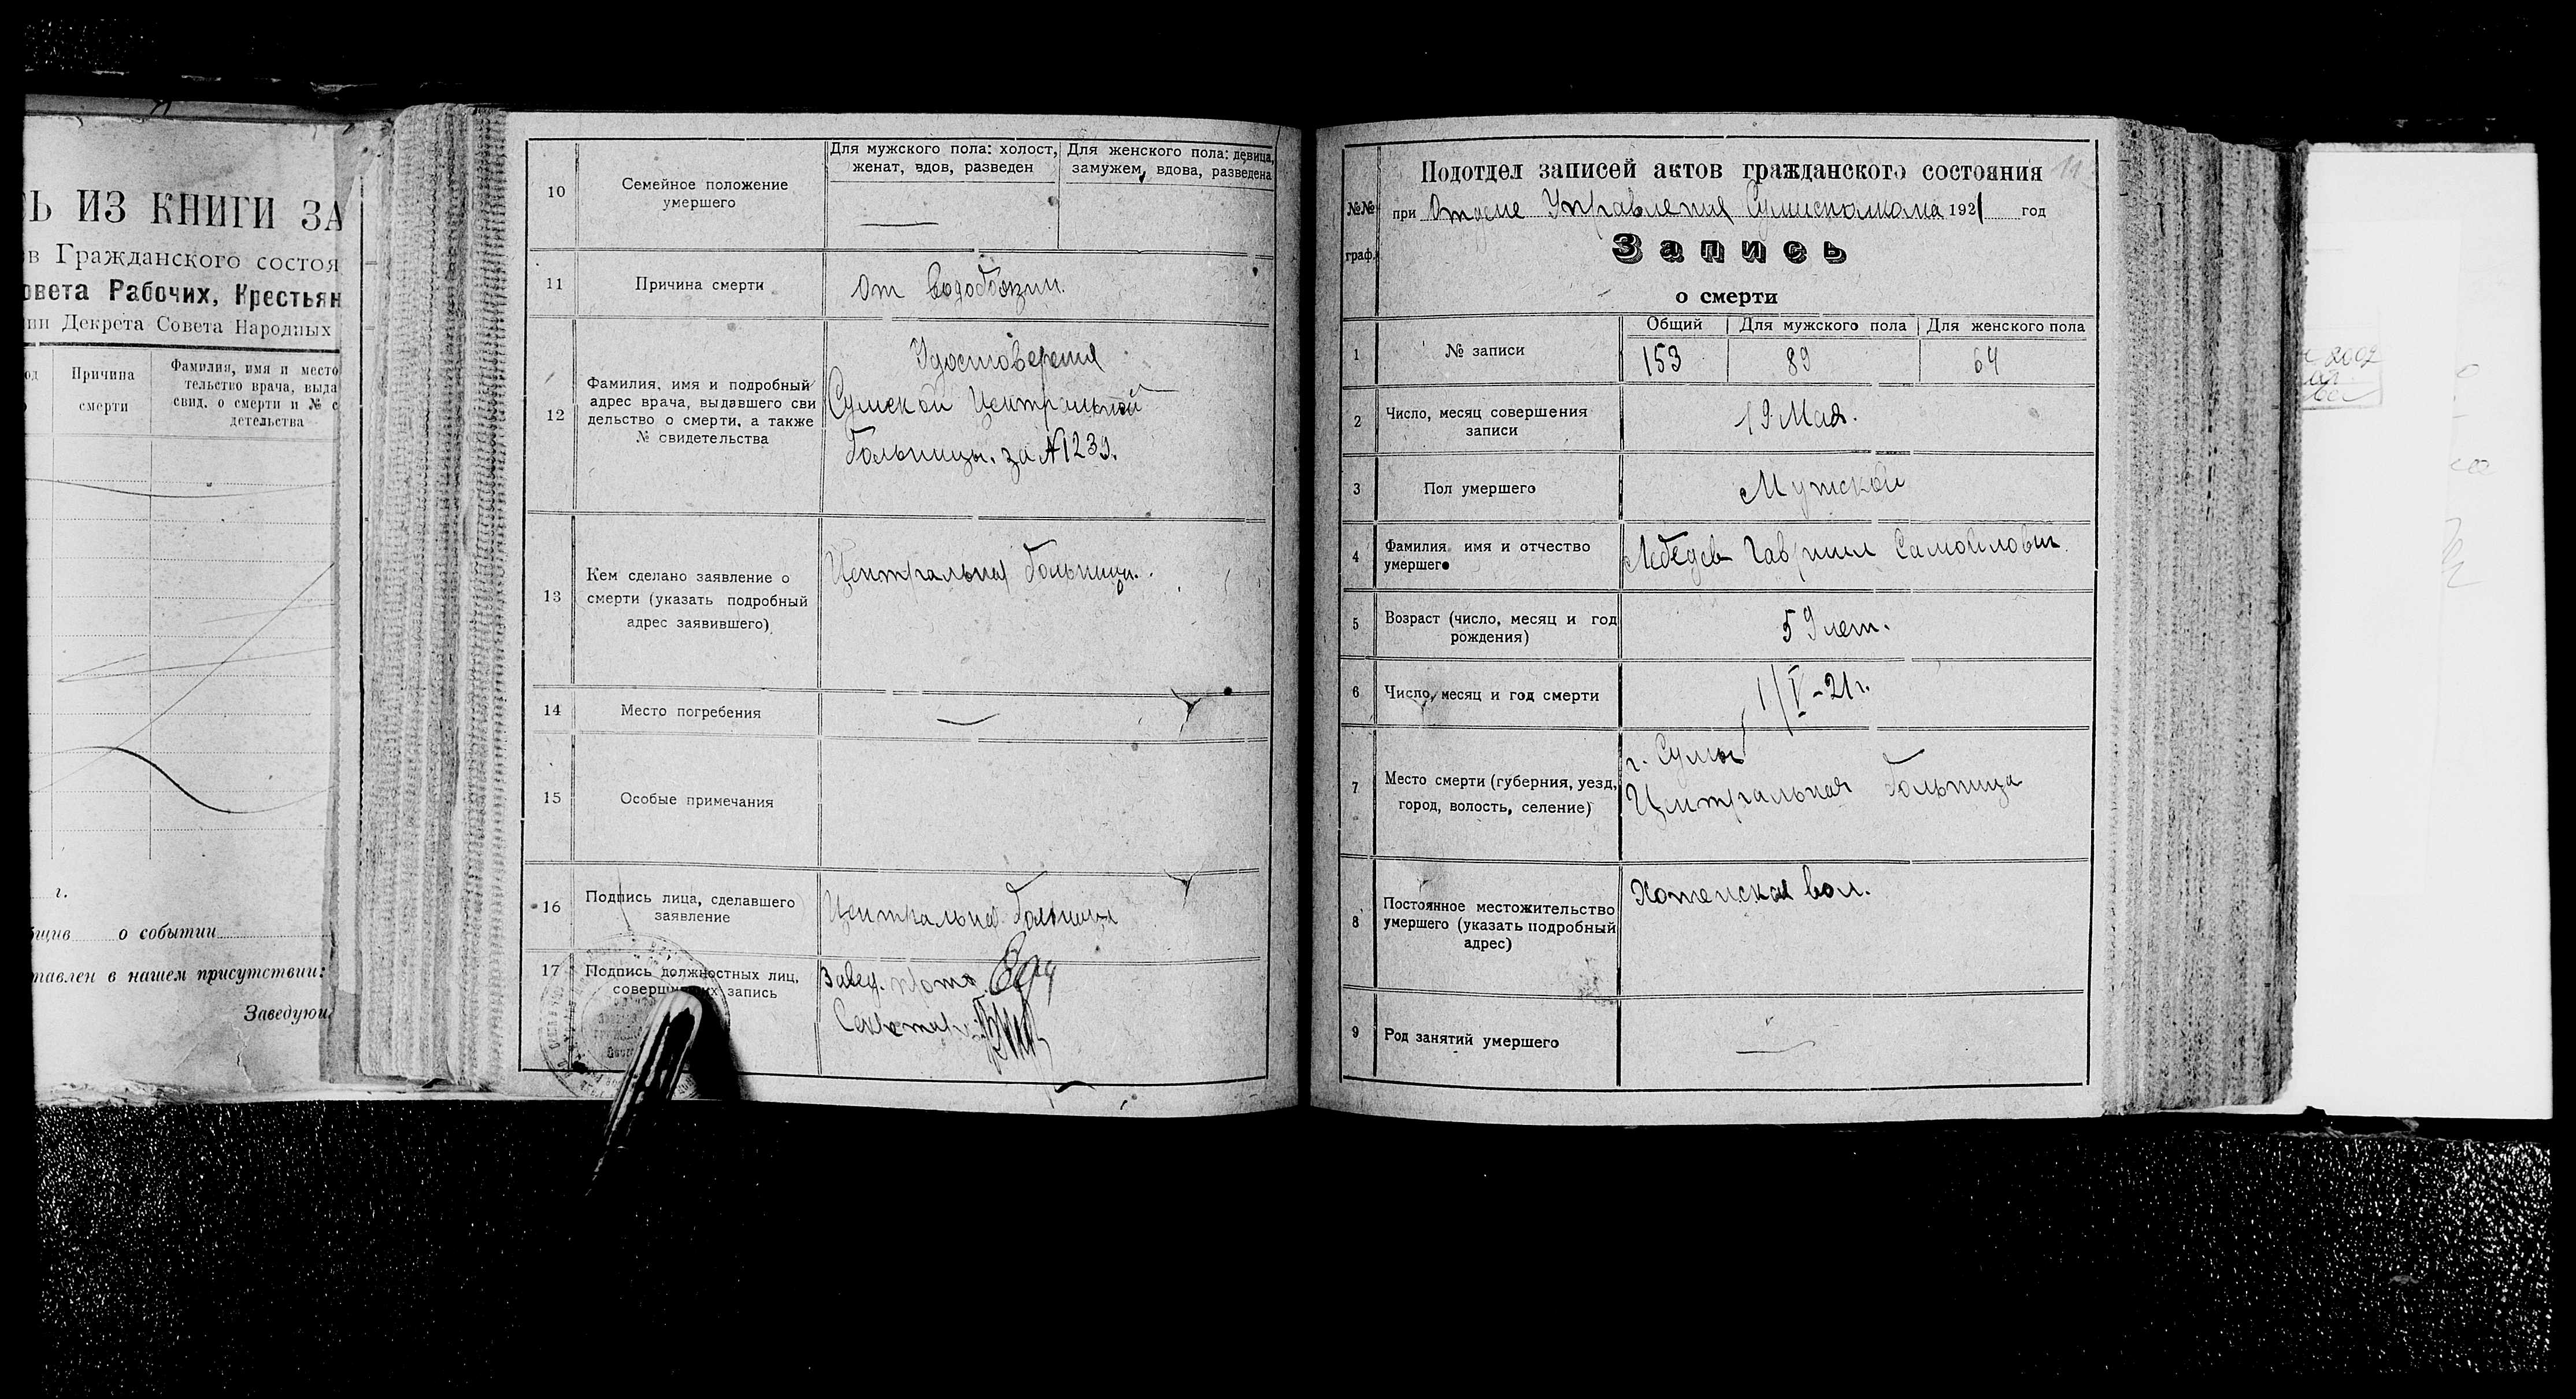 Ь ИЗ КНИГИ ЗА
в Гражданского состоя
овета Рабочих, Крестьян
ии Декрета Совета Народных
Причина
смерти
Фамилия, имя и место
тельство врача, выда
свид. о смерти и № с
детельства
г.
бщив о событии
тавлен в нашем присутствии:
Заведую
10
Семейное положение
умершего
Для мужского пола: холост,
женат, вдов, разведен
Для женского пола: девица,
замужем, вдова, разведена
—
11
Причина смерти
От водобоязни.
12
Фамилия, имя и подробный
адрес врача, выдавшего сви
дельство о смерти, а также
№ свидетельства
Удостоверения
Сумской Центральной
больницы. за №1239.
13
Кем сделано заявление о
смерти (указать подробный
адрес заявившего)
Центральная больница.
14
Место погребения
—
15
Особые примечания
16
Подпись лица, сделавшего
заявление
Центральная больница
17
Подпись должностных лиц,
совершивших запись
Завед. п/отд.
Секретарь
11
№№
граф.
Подотдел записей актов гражданского состояния
при Отделе Управления Сумисполкома 1921 год
Запись
о смерти
1
№ записи
Общий
Для мужского пола
Для женского пола
153
89
64
2
Число, месяц совершения
записи
19 Мая.
3
Пол умершего
Мужской
4
Фамилия имя и отчество
умершего
Лебедев Гавриил Самойлович.
5
Возраст (число, месяц и год
рождения)
59 лет.
6
Число, месяц и год смерти
1/V-21г.
7
Место смерти (губерния, уезд,
город, волость, селение)
г. Сумы
Центральная больница
8
Постоянное местожительство
умершего (указать подробный
адрес)
Хотенская вол.
9
Род занятий умершего
—
2002